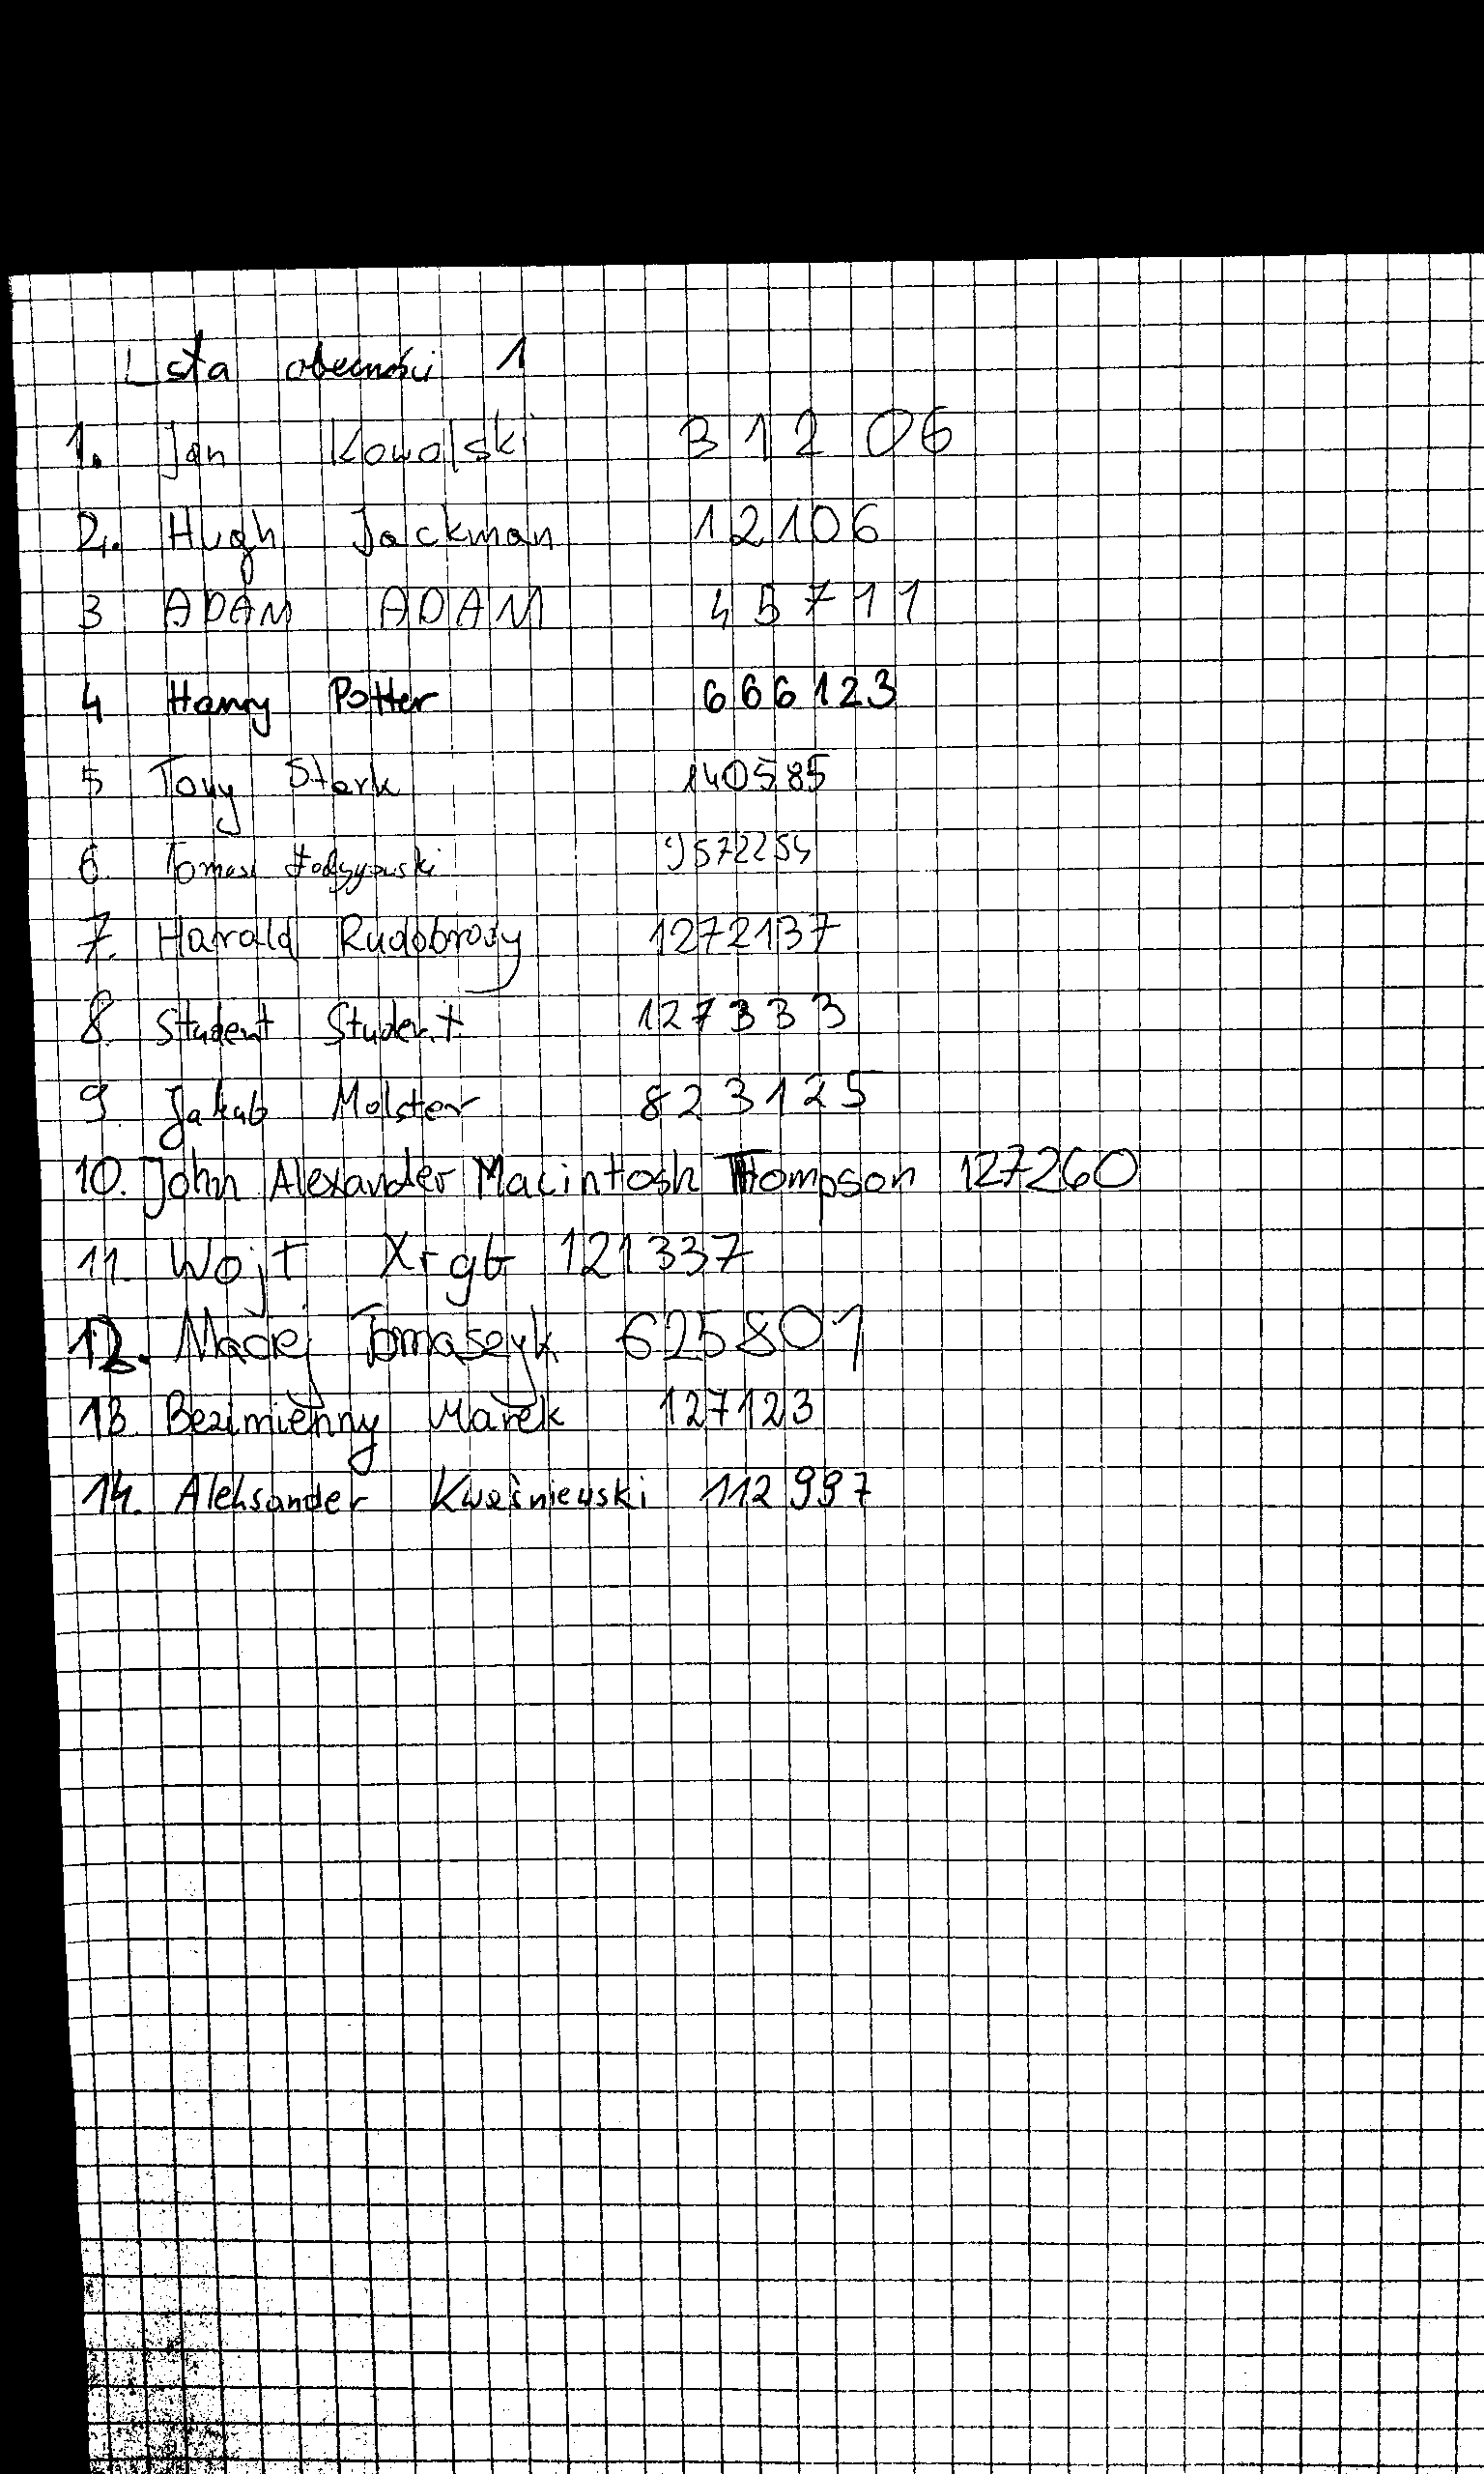 Lista obecności 1
1. Jan Kowalski 31206
2. Hugh Jackman 12106
3 ADAM ADAM 45711
4 Harry Potter 666123
5 Tony Stark 140585
6. Tomasz 9572254
7. Harald Rudobrody 1272137
8. Student Student 127333
9. Jakub Molster 823125
10. John Alexander Macintosh Thompson 127260
11. Wojt Xrgb 121337
12. Maciej Tomaszyk 625801
13. Bezimienny Marek 127123
14. Aleksander Kwaśniewski 112997